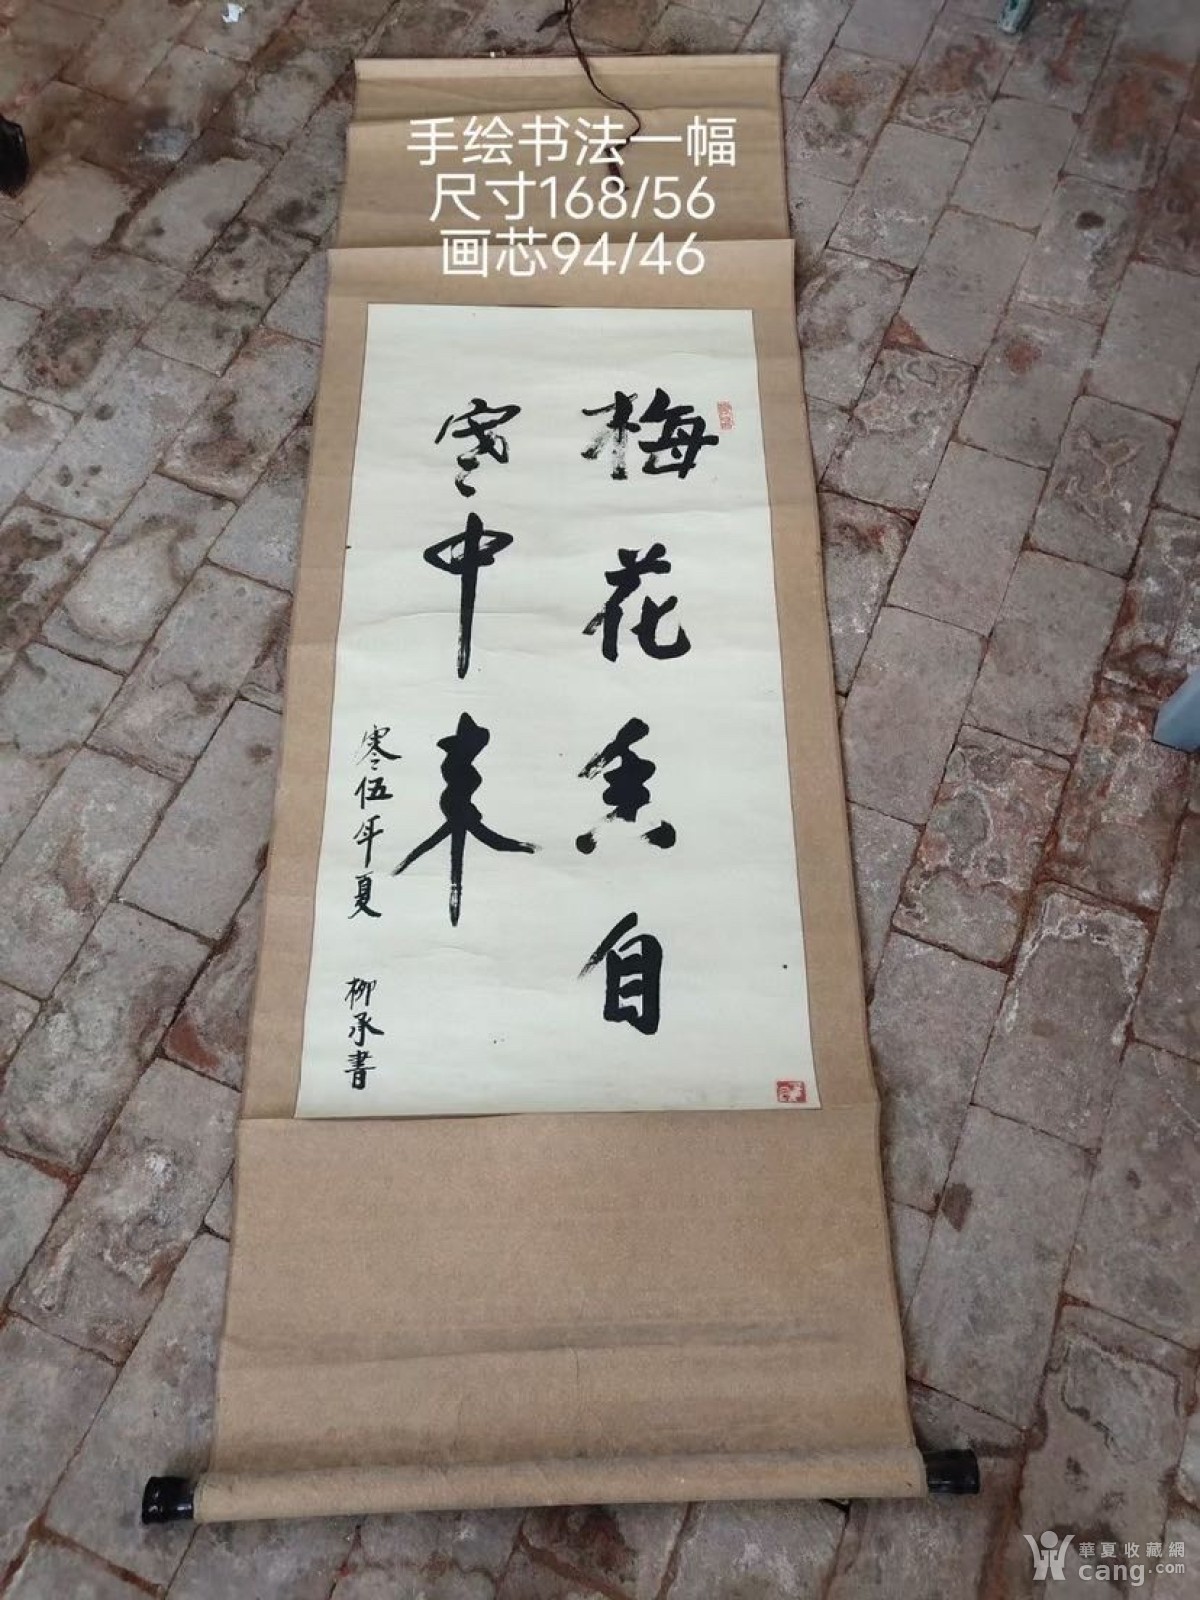 手绘书法一幅
尺寸168/56
画芯94/46
梅花香自
寒中来
零伍年夏 柳承書
華夏收藏網
cang.com